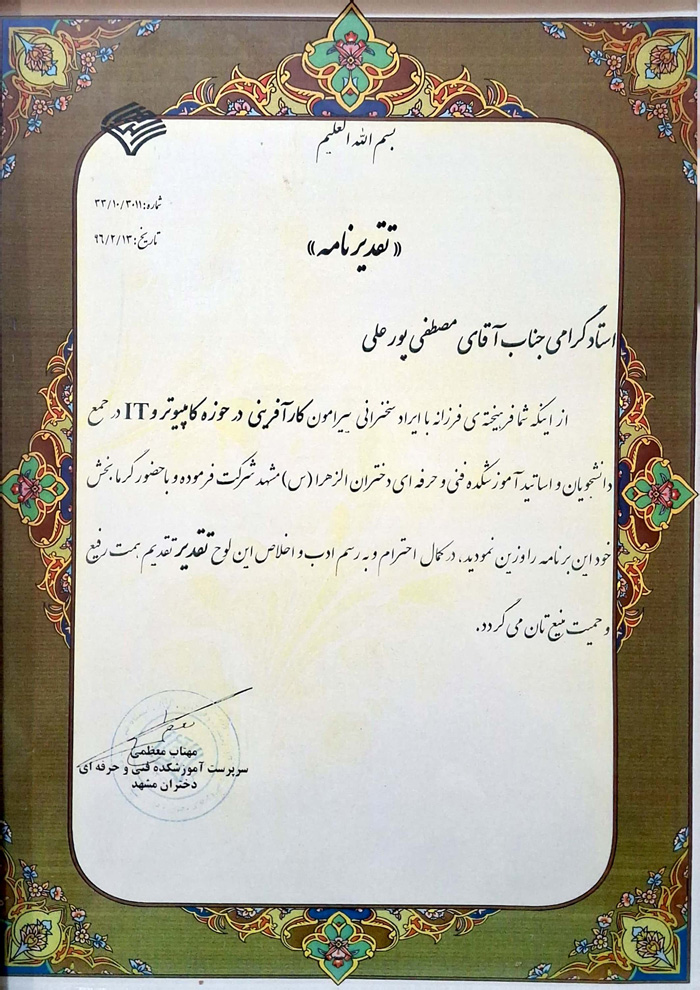 بسم الله العلیم
شماره: ۳۳/۱۰/۳۰۱۱
تاریخ: ۹۶/۲/۱۳
«تقدیرنامه»
استاد گرامی جناب آقای مصطفی پور علی
از اینکه شما فرهیخته ی فرزانه با ایراد سخنرانی پیرامون کارآفرینی در حوزه کامپیوتر و IT در جمع
دانشجویان و اساتید آموزشکده فنی و حرفه ای دختران الزهرا (س) مشهد شرکت فرموده و با حضور گرما بخش
خود این برنامه را وزین نمودید، در کمال احترام و به رسم ادب و اخلاص این لوح تقدیر تقدیم همت رفیع
و حمیت منیع تان می گردد.
مهناب معظمی
سرپرست آموزشکده فنی و حرفه ای
دختران مشهد